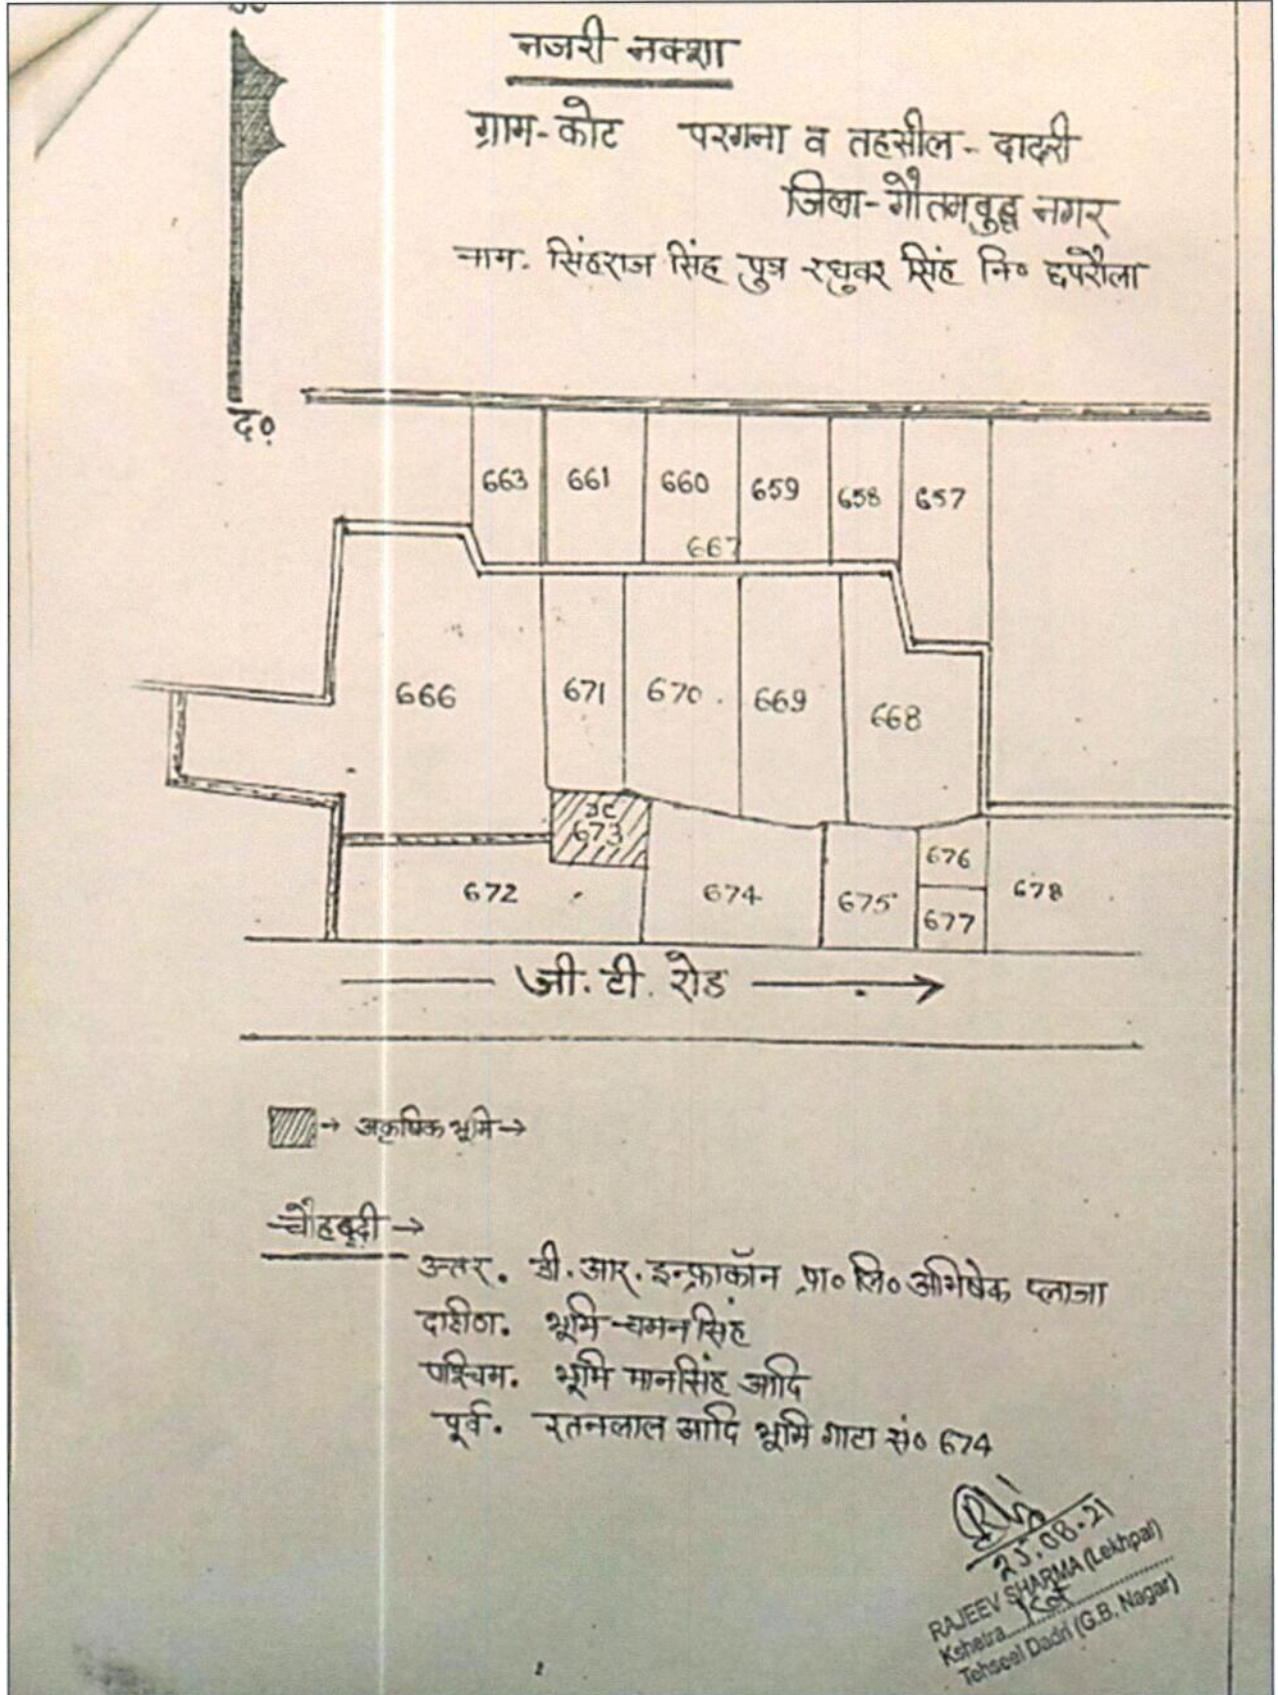 नजरी नक्शा
ग्राम-कोट परगना व तहसील - दादरी
जिला-गौतमबुद्ध नगर
नाम. सिंहराज सिंह पुत्र रघुवर सिंह नि० छपरौला
द०
663 661 660 659 658 657
667
666 671 670 669 668
673
672 674 675 676 678
677
जी.टी. रोड
अकृषिक भूमि
चौहद्दी
उत्तर. डी.आर. इन्फ्राकॉन प्रा० लि० अभिषेक प्लाजा
दक्षिण. भूमि चमन सिंह
पश्चिम. भूमि मानसिंह आदि
पूर्व. रतनलाल आदि भूमि गाटा सं० 674
25.08.21
RAJEEV SHARMA (Lekhpal)
Kshetra
Tehseel Dadri (G.B. Nagar)